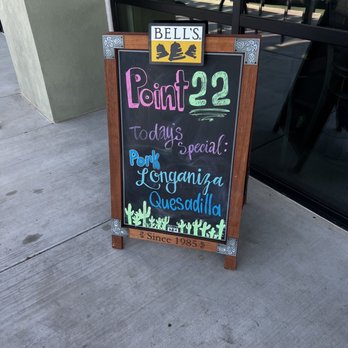 BELL'S.
Point 22
Today's
Special:
Pork
Longaniza
Quesadilla
Since 1985